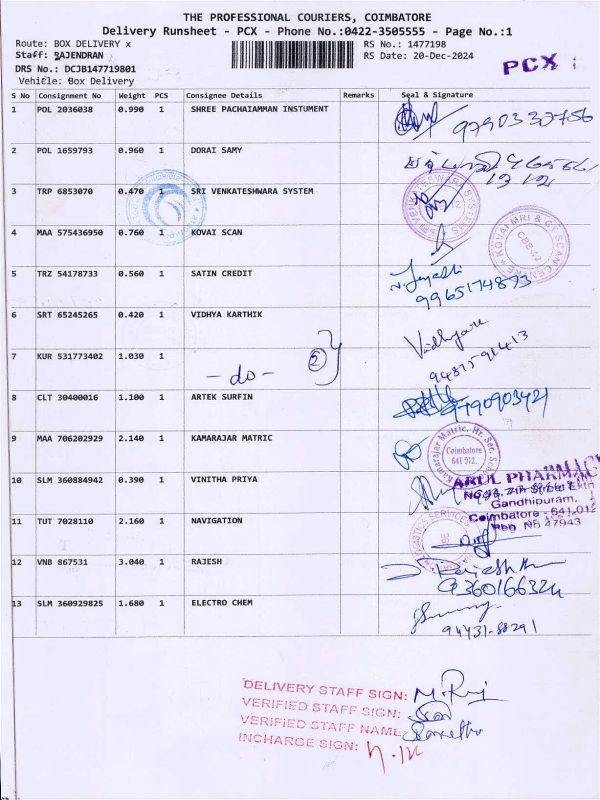 THE PROFESSIONAL COURIERS, COIMBATORE
Delivery Runsheet - PCX - Phone No.:0422-3505555 - Page No.:1
Route: BOX DELIVERY x
RS No.: 1477198
Staff: RAJENDRAN
RS Date: 20-Dec-2024
PCX
DRS No.: DCJB147719801
Vehicle: Box Delivery
S No Consignment No Weight PCS Consignee Details Remarks Seal & Signature
1 POL 2036038 0.990 1 SHREE PACHAIAMMAN INSTUMENT 9790330756
2 POL 1659793 0.960 1 DORAI SAMY
3 TRP 6853070 0.470 1 SRI VENKATESHWARA SYSTEM
SRI VENKATESWARA SYSTEMS
4 MAA 575436950 0.760 1 KOVAI SCAN
KOVAI MRI & CT SCAN CENTRE
CBE-42
5 TRZ 54178733 0.560 1 SATIN CREDIT
9965174873
6 SRT 65245265 0.420 1 VIDHYA KARTHIK
7 KUR 531773402 1.030 1 - do - 2
8 CLT 30400016 1.100 1 ARTEK SURFIN 9790903421
9 MAA 706202929 2.140 1 KAMARAJAR MATRIC
Kamarajar Matric. Hr. Sec.
Coimbatore
641 012.
10 SLM 360884942 0.390 1 VINITHA PRIYA
ARUL PHARMACY
Gandhipuram,
Coimbatore - 641 012
11 TUT 7028110 2.160 1 NAVIGATION
12 VNB 867531 3.040 1 RAJESH
13 SLM 360929825 1.680 1 ELECTRO CHEM
94431-88291
DELIVERY STAFF SIGN:
VERIFIED STAFF SIGN:
VERIFIED STAFF NAME:
INCHARGE SIGN: